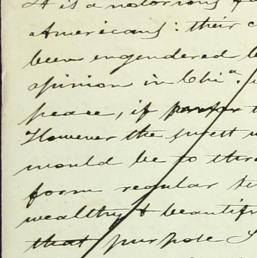 It is a notorious
Americans: their
been engendered
opinion in Chiª.
peace, if
However the
would be to
form regular
wealthy & beautif
that purpose I